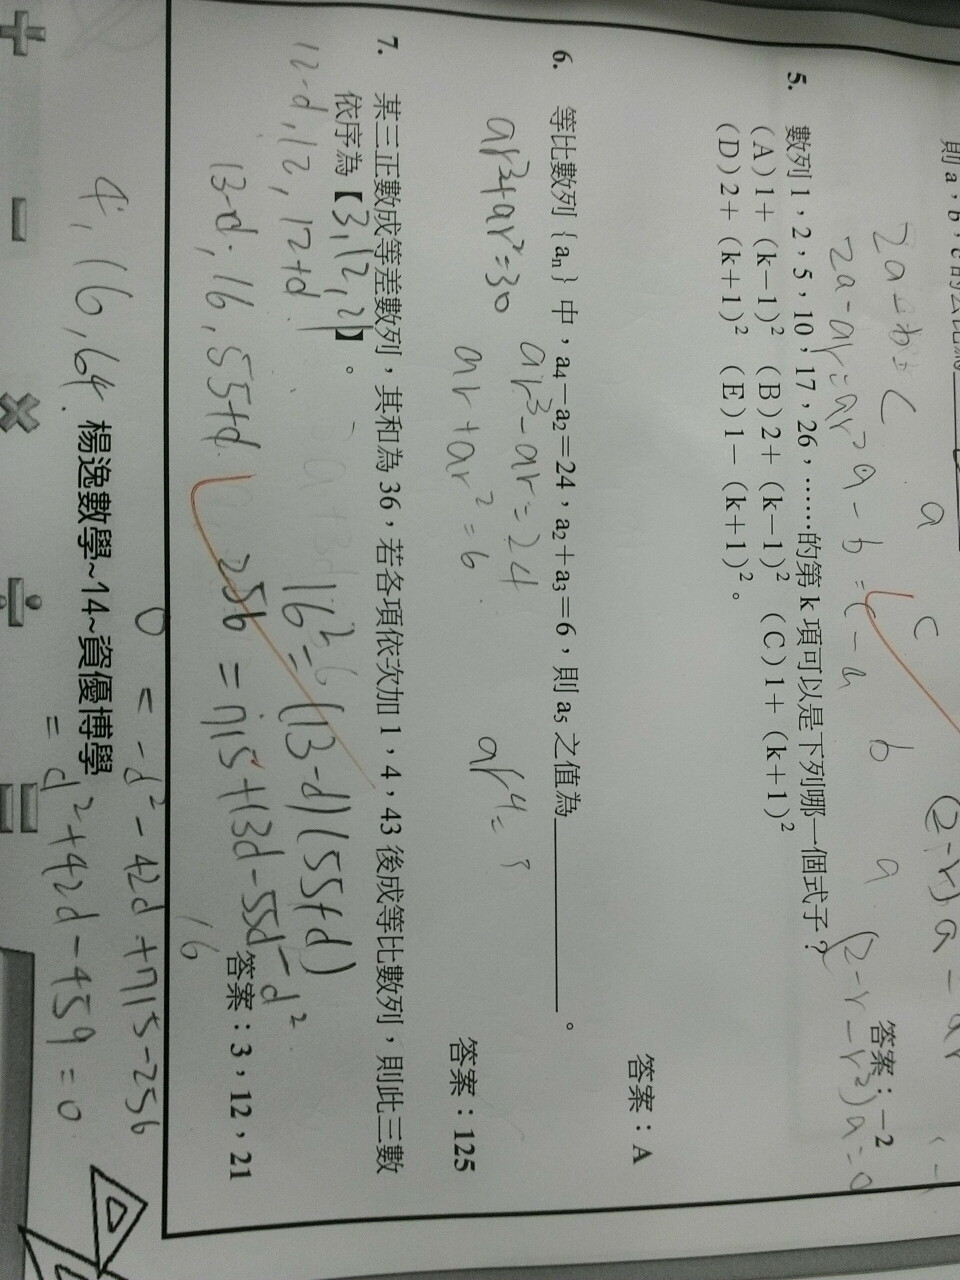 則 a，b，c 的公比為
a
c
b
a
2a-b=c
2a-ar=ar²
a-b=c-a
(2-r-r²)a=0
答案：−2
5. 數列 1，2，5，10，17，26，……的第 k 項可以是下列哪一個式子？
(A) 1+（k−1）² (B) 2+（k−1）² (C) 1+（k+1）²
(D) 2+（k+1）² (E) 1−（k+1）²。
答案：A
6. 等比數列｛aₙ｝中，a₄−a₂=24，a₂+a₃=6，則 a₅ 之值為＿＿＿＿＿＿。
ar³+ar²=30
ar³-ar=24
ar+ar²=6
ar⁴=?
答案：125
7. 某三正數成等差數列，其和為 36，若各項依次加 1，4，43 後成等比數列，則此三數
依序為【3,12,21】。
12-d,12,12+d
13-d,16,55+d
16²=(13-d)(55+d)
256=715+13d-55d-d²
16
答案：3，12，21
0=-d²-42d+715-256
=d²+42d-459=0
4,16,64
楊逸數學~14~資優博學